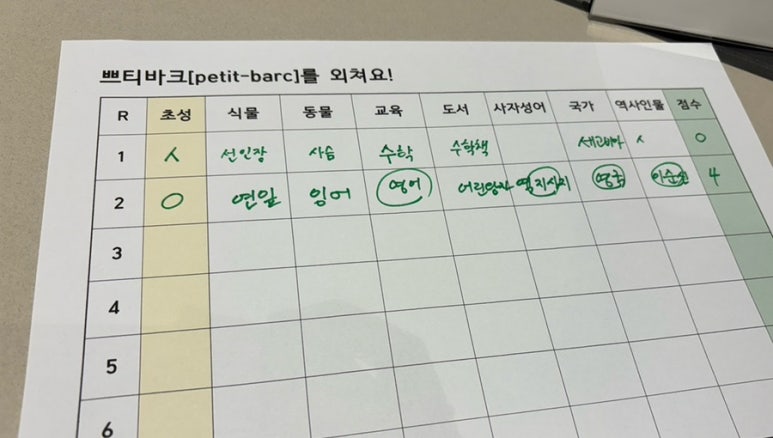 쁘티바크[petit-barc]를 외쳐요!
R 초성 식물 동물 교육 도서 사자성어 국가 역사인물 점수
1 ㅅ 선인장 사슴 수학 수학책 ㅅ 0
2 ㅇ 연잎 잉어 영어 어린왕자 역지사지 영국 이순신 4
3
4
5
6